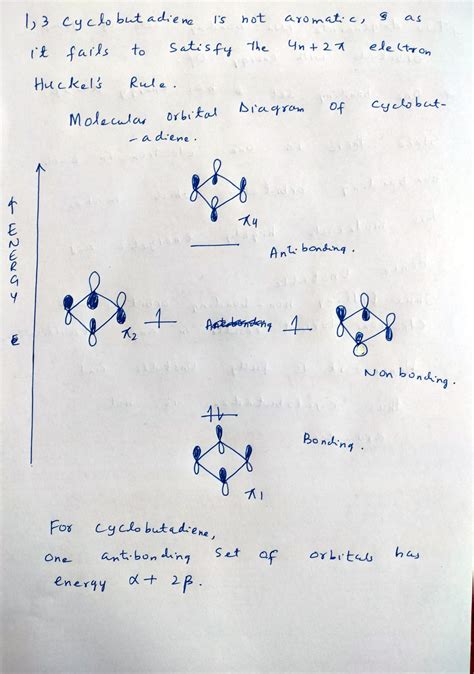 1,3 cyclobutadiene is not aromatic, as
it fails to satisfy the 4n+2π electron
Huckel's Rule.
Molecular orbital Diagram of cyclobut-
-adiene.
↑ ENERGY E
π4
Antibonding.
π2
Antibonding
Non bonding.
Bonding.
π1
For cyclobutadiene,
one antibonding set of orbitals has
energy α + 2β.